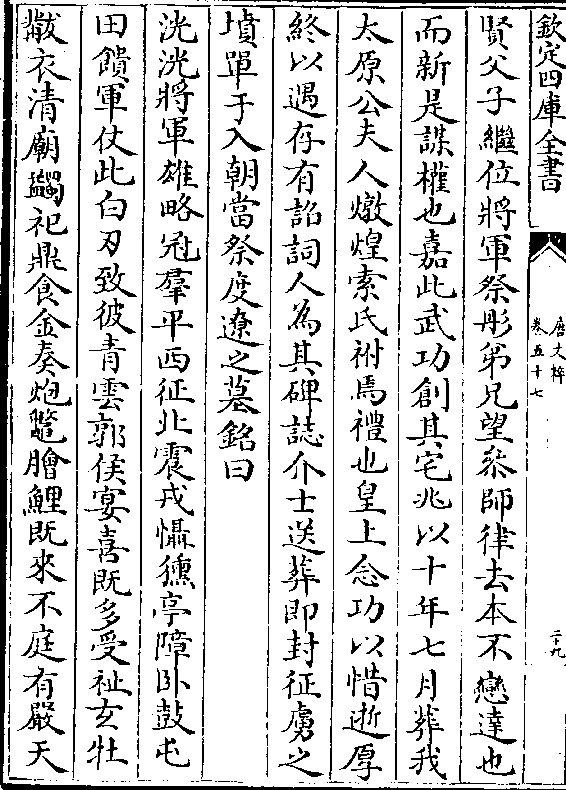 欽定四庫全書
唐文粹
卷五十七
二十九
賢父子繼位將軍祭彤弟兄望參師律去本不戀達也
而新是謀權也嘉此武功創其宅兆以十年七月葬我
太原公夫人燉煌索氏祔焉禮也皇上念功以惜逝厚
終以遇存有詔詞人為其碑誌介士送葬即封征虜之
墳單于入朝當祭度遼之墓銘曰
洸洸將軍雄略冠羣平西征北震戎懾獯亭障臥鼓屯
田饋軍仗此白刃致彼青雲郭侯宴喜既多受祉玄牡
黻衣清廟蠲祀鼎食金奏炮鼈膾鯉既來不庭有嚴天